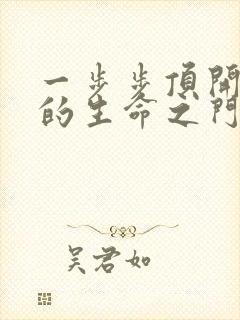 一步步頂開
的生命之門
吴君如